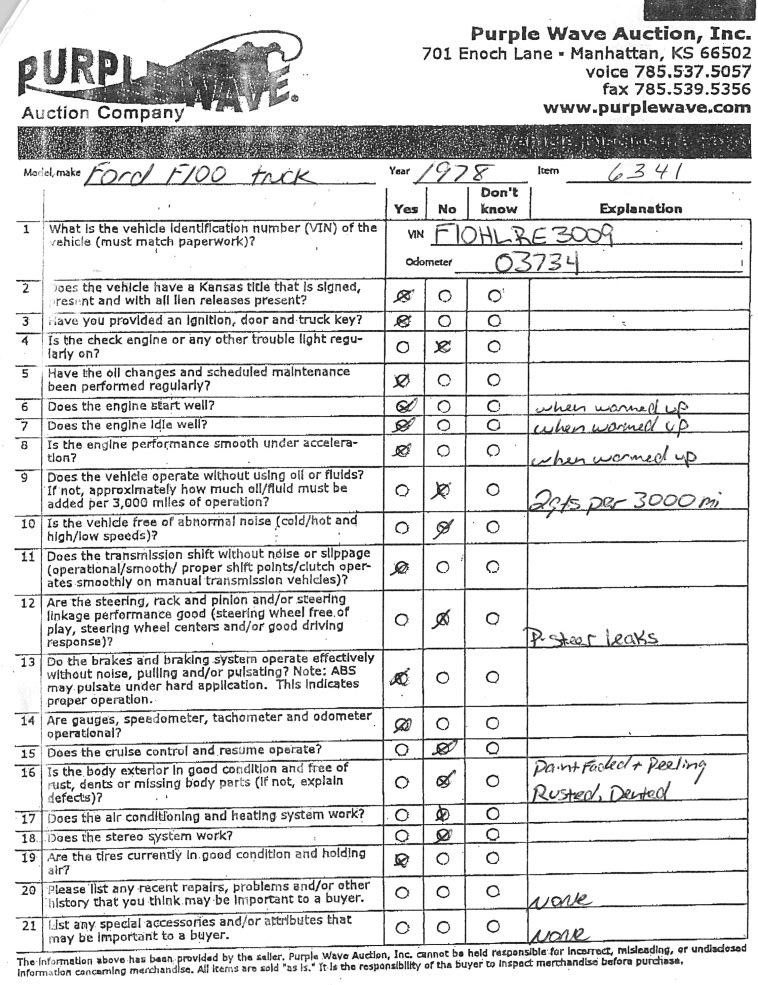 Purple Wave Auction, Inc.
701 Enoch Lane - Manhattan, KS 66502
voice 785.537.5057
fax 785.539.5356
www.purplewave.com
PURPLE WAVE®
Auction Company
Model, make Ford F100 truck Year 1978 Item 6341
Yes No Don't know Explanation
1 What is the vehicle identification number (VIN) of the
vehicle (must match paperwork)?
VIN F10HLRE3009
Odometer 03734
2 Does the vehicle have a Kansas title that is signed,
present and with all lien releases present?
3 Have you provided an ignition, door and truck key?
4 Is the check engine or any other trouble light regu-
larly on?
5 Have the oil changes and scheduled maintenance
been performed regularly?
6 Does the engine start well? when warmed up
7 Does the engine idle well? when warmed up
8 Is the engine performance smooth under accelera-
tion? when warmed up
9 Does the vehicle operate without using oil or fluids?
If not, approximately how much oil/fluid must be
added per 3,000 miles of operation? 2qts per 3000 mi
10 Is the vehicle free of abnormal noise (cold/hot and
high/low speeds)?
11 Does the transmission shift without noise or slippage
(operational/smooth/ proper shift points/clutch oper-
ates smoothly on manual transmission vehicles)?
12 Are the steering, rack and pinion and/or steering
linkage performance good (steering wheel free of
play, steering wheel centers and/or good driving
response)? P. steer leaks
13 Do the brakes and braking system operate effectively
without noise, pulling and/or pulsating? Note: ABS
may pulsate under hard application. This indicates
proper operation.
14 Are gauges, speedometer, tachometer and odometer
operational?
15 Does the cruise control and resume operate?
16 Is the body exterior in good condition and free of
rust, dents or missing body parts (if not, explain
defects)?
Paint Faded + Peeling
Rusted, Dented
17 Does the air conditioning and heating system work?
18 Does the stereo system work?
19 Are the tires currently in good condition and holding
air?
20 Please list any recent repairs, problems and/or other
history that you think may be important to a buyer. none
21 List any special accessories and/or attributes that
may be important to a buyer. none
The information above has been provided by the seller. Purple Wave Auction, Inc. cannot be held responsible for incorrect, misleading, or undisclosed
information concerning merchandise. All items are sold "as is." It is the responsibility of the buyer to inspect merchandise before purchase.